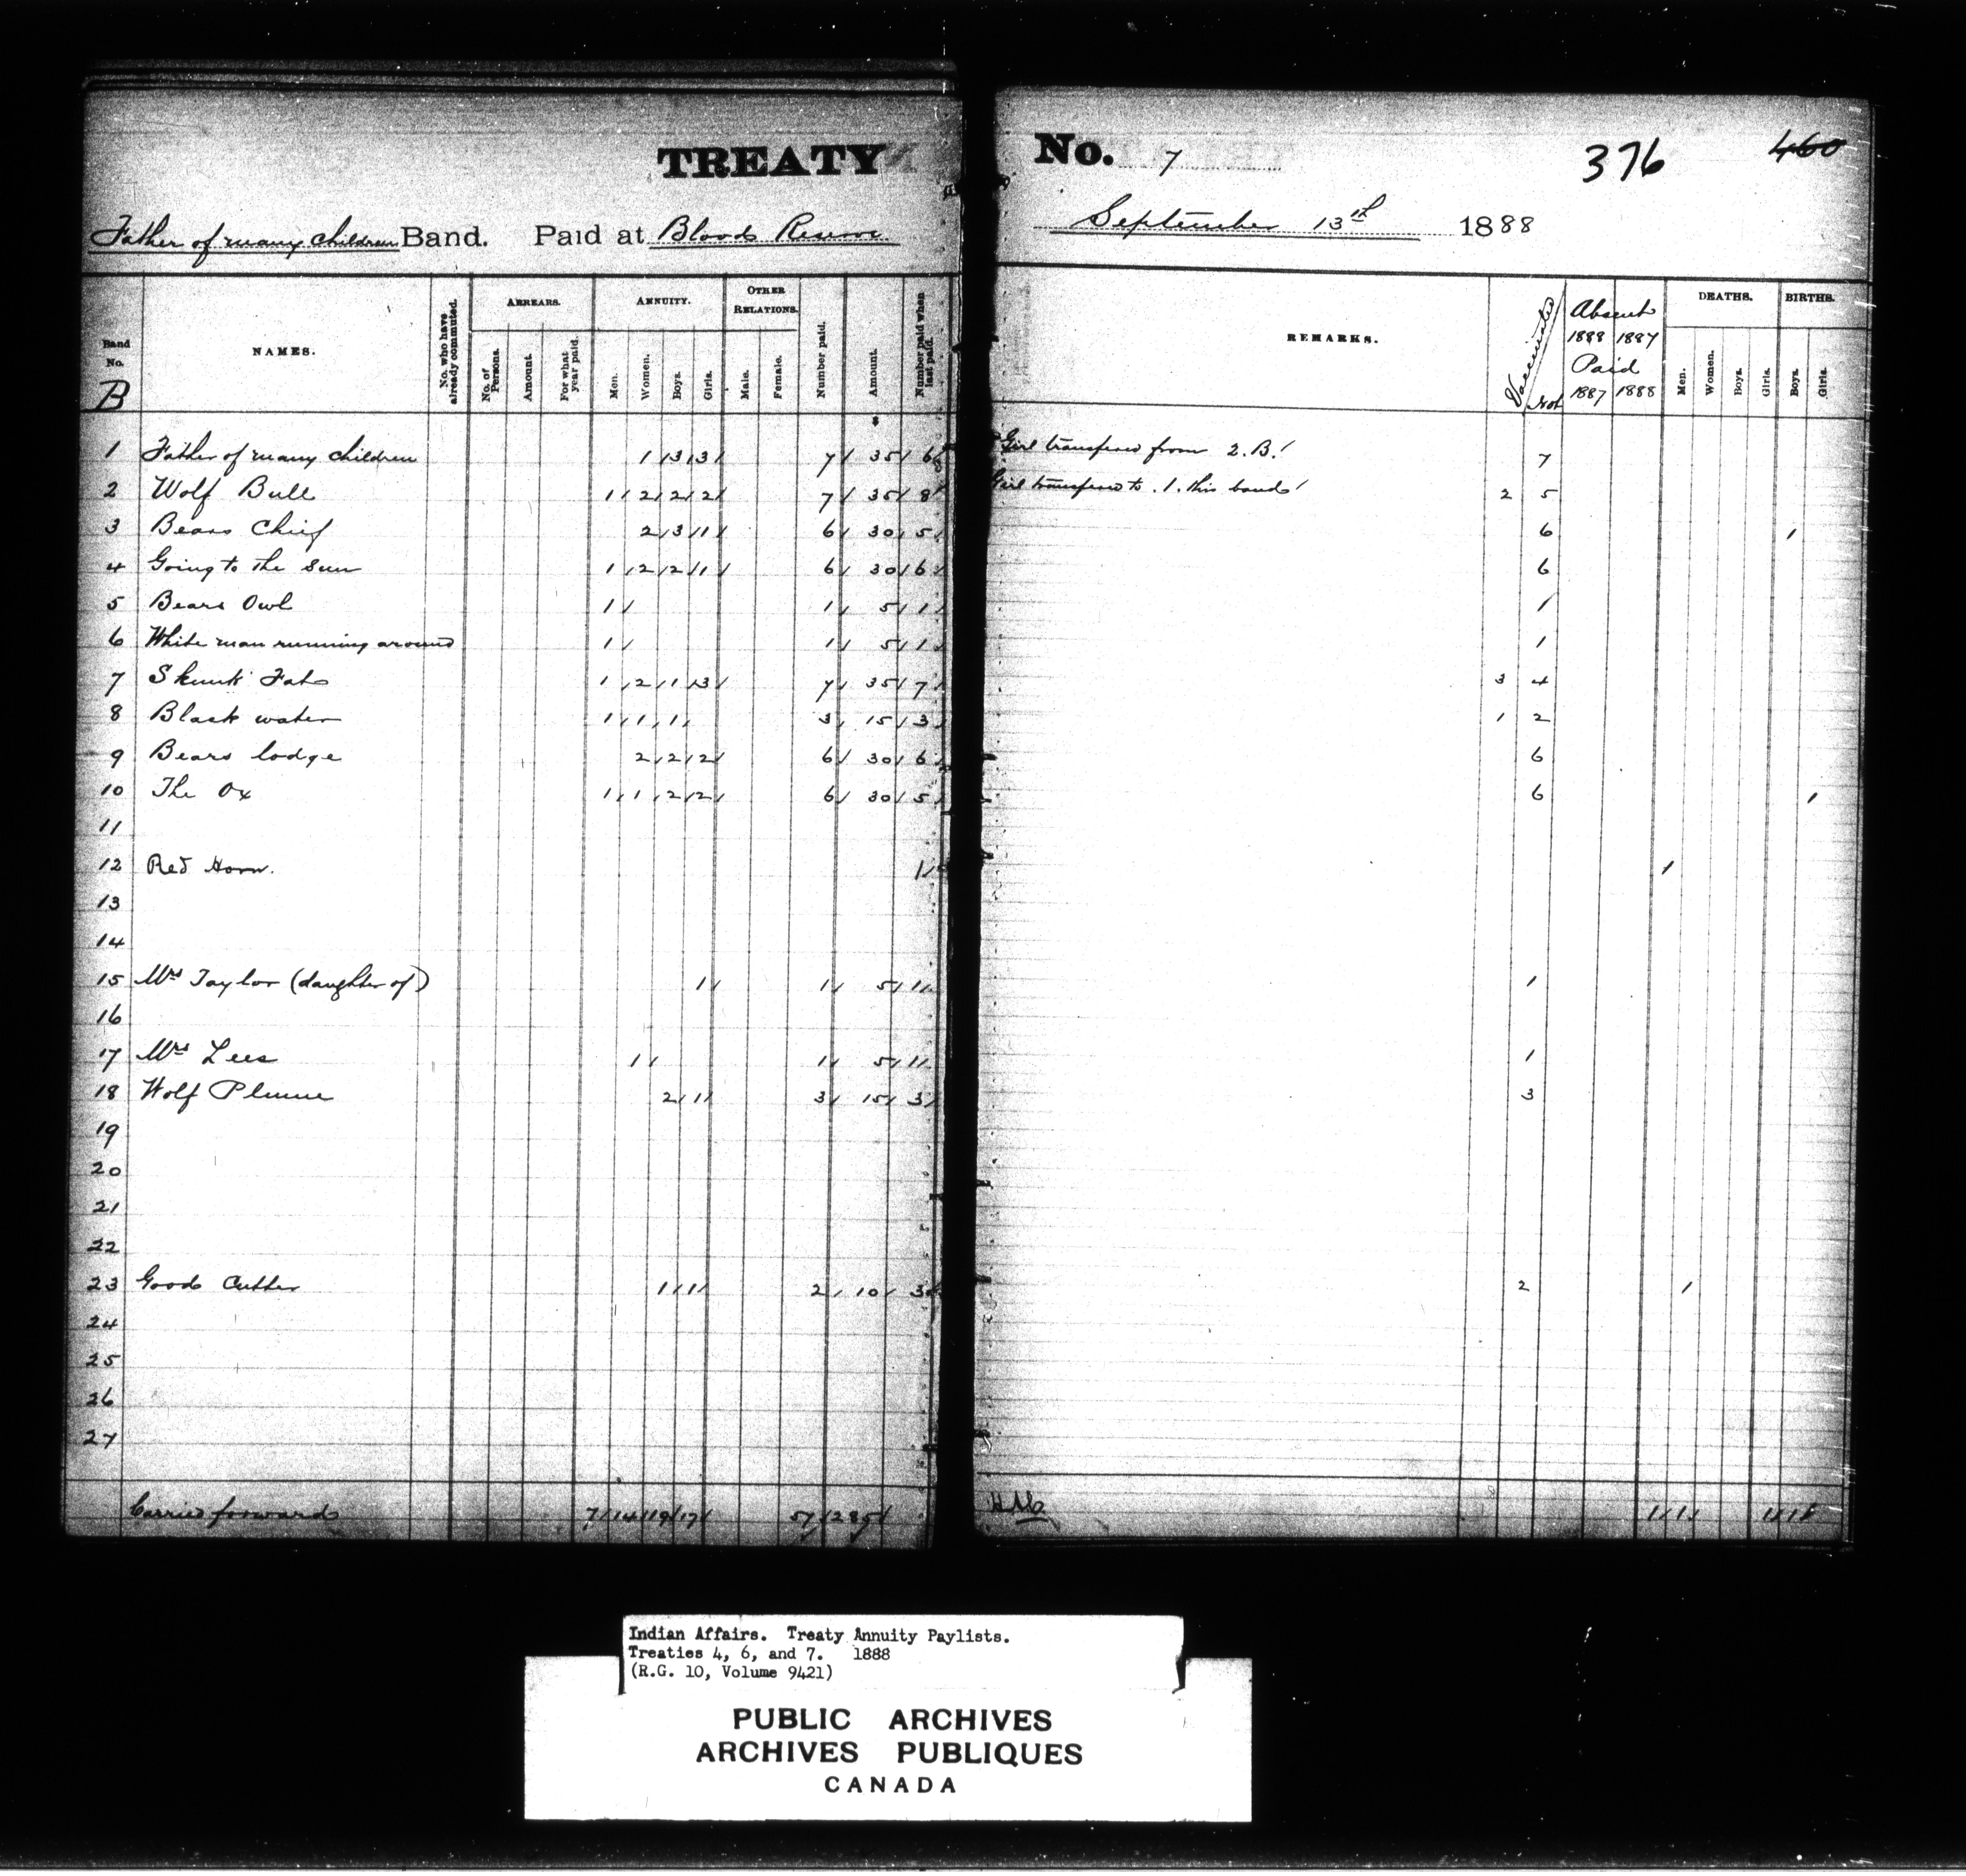 TREATY No. 7 376 460
Father of many children Band. Paid at Bloods Reserve September 13th 1888
Band No. B NAMES. No. who have already commuted. ARREARS. No. of Persons. Amount. For what year paid. ANNUITY. Men. Women. Boys. Girls. OTHER RELATIONS. Male. Female. Number paid. Amount. Number paid when last paid. REMARKS. Vaccinated Not Absent 1888 1887 Paid 1887 1888 DEATHS. Men. Women. Boys. Girls. BIRTHS. Boys. Girls.
$
1 Father of many children 1 3 3 7 35 6 Girl transfered from 2.B. 7
2 Wolf Bull 1 2 2 2 7 35 8 Girl transfered to .1. this band 2 5
3 Bears Chief 2 3 1 6 30 5 6 1
4 Going to the Sun 1 2 2 1 6 30 6 6
5 Bears Owl 1 1 5 1 1
6 White man running around 1 1 5 1 1
7 Skunk Fat 1 2 1 3 7 35 7 3 4
8 Black water 1 1 1 3 15 3 1 2
9 Bears lodge 2 2 2 6 30 6 6
10 The Ox 1 1 2 2 6 30 5 6 1
11
12 Red Horn. 1 1
13
14
15 Mrs Taylor (daughter of) 1 1 5 1 1
16
17 Mrs Lees 1 1 5 1 1
18 Wolf Plume 2 1 3 15 3 3
19
20
21
22
23 Good Cutter 1 1 2 10 3 2 1
24
25
26
27
Carried forward 7 14 19 17 57 285 1 1 1 1
Indian Affairs. Treaty Annuity Paylists.
Treaties 4, 6, and 7. 1888
(R.G. 10, Volume 9421)
PUBLIC ARCHIVES
ARCHIVES PUBLIQUES
CANADA